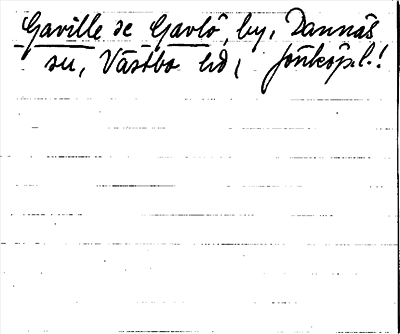 Gaville se Gavlö, by, Dannäs
sn, Västbo hd, Jönköp.l.!